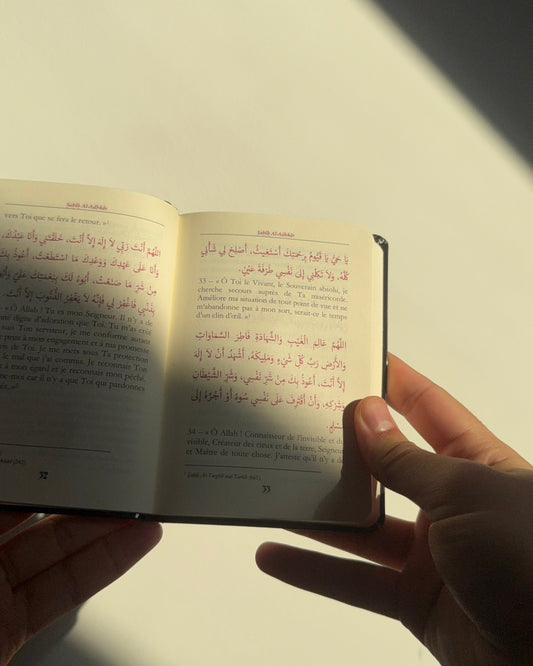 Sahîh Al-Adhkâr
vers Toi que se fera le retour. »¹
اللَّهُمَّ أَنْتَ رَبِّي لَا إِلَهَ إِلَّا أَنْتَ، خَلَقْتَنِي وَأَنَا عَبْدُكَ،
وَأَنَا عَلَى عَهْدِكَ وَوَعْدِكَ مَا اسْتَطَعْتُ، أَعُوذُ بِكَ
مِنْ شَرِّ مَا صَنَعْتُ، أَبُوءُ لَكَ بِنِعْمَتِكَ عَلَيَّ
بِذَنْبِي فَاغْفِرْ لِي فَإِنَّهُ لَا يَغْفِرُ الذُّنُوبَ إِلَّا أَنْتَ.
Ô Allah ! Tu es mon Seigneur. Il n'y a de
digne d'adoration que Toi. Tu m'as créé
suis Ton serviteur, je me conforme autant
peux à mon engagement et à ma promesse
de Toi. Je me mets sous Ta protection
le mal que j'ai commis. Je reconnais Ton
à mon égard et je reconnais mon péché.
-moi car il n'y a que Toi qui pardonnes
32
Sahîh Al-Adhkâr
يَا حَيُّ يَا قَيُّومُ بِرَحْمَتِكَ أَسْتَغِيثُ، أَصْلِحْ لِي شَأْنِي
كُلَّهُ، وَلَا تَكِلْنِي إِلَى نَفْسِي طَرْفَةَ عَيْنٍ.
33 – « Ô Toi le Vivant, le Souverain absolu, je
cherche secours auprès de Ta miséricorde.
Améliore ma situation de tout point de vue et ne
m'abandonne pas à mon sort, serait-ce le temps
d'un clin d'œil. »¹
اللَّهُمَّ عَالِمَ الْغَيْبِ وَالشَّهَادَةِ فَاطِرَ السَّمَاوَاتِ
وَالْأَرْضِ رَبَّ كُلِّ شَيْءٍ وَمَلِيكَهُ، أَشْهَدُ أَنْ لَا إِلَهَ
إِلَّا أَنْتَ، أَعُوذُ بِكَ مِنْ شَرِّ نَفْسِي، وَشَرِّ الشَّيْطَانِ
وَشِرْكِهِ، وَأَنْ أَقْتَرِفَ عَلَى نَفْسِي سُوءًا أَوْ أَجُرَّهُ إِلَى
34 – « Ô Allah ! Connaisseur de l'invisible et du
visible, Créateur des cieux et de la terre, Seigneur
et Maître de toute chose. J'atteste qu'il n'y a de
¹ Sahîh At-Targhîb wat-Tarhîb (661)
33